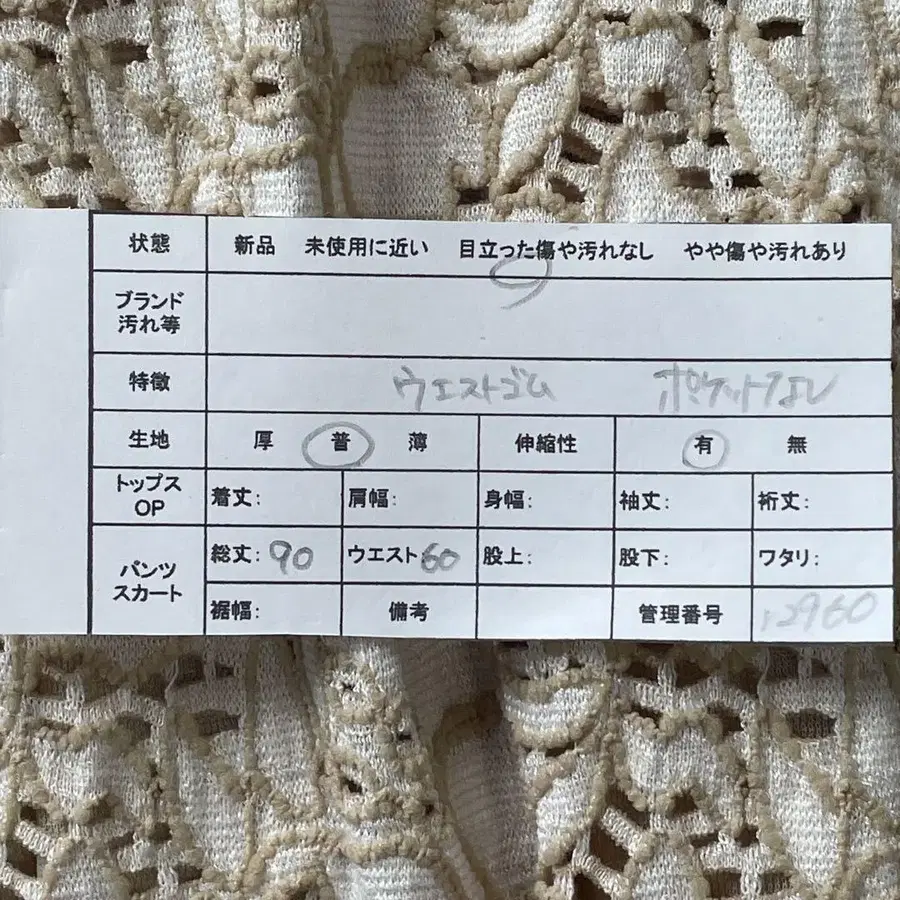 状態 新品 未使用に近い 目立った傷や汚れなし やや傷や汚れあり
ブランド
汚れ等
特徴 ウエストゴム ポケットなし
生地 厚 普 薄 伸縮性 有 無
トップス
OP 着丈: 肩幅: 身幅: 袖丈: 裄丈:
パンツ
スカート 総丈: 90 ウエスト: 60 股上: 股下: ワタリ:
裾幅: 備考 管理番号 2960